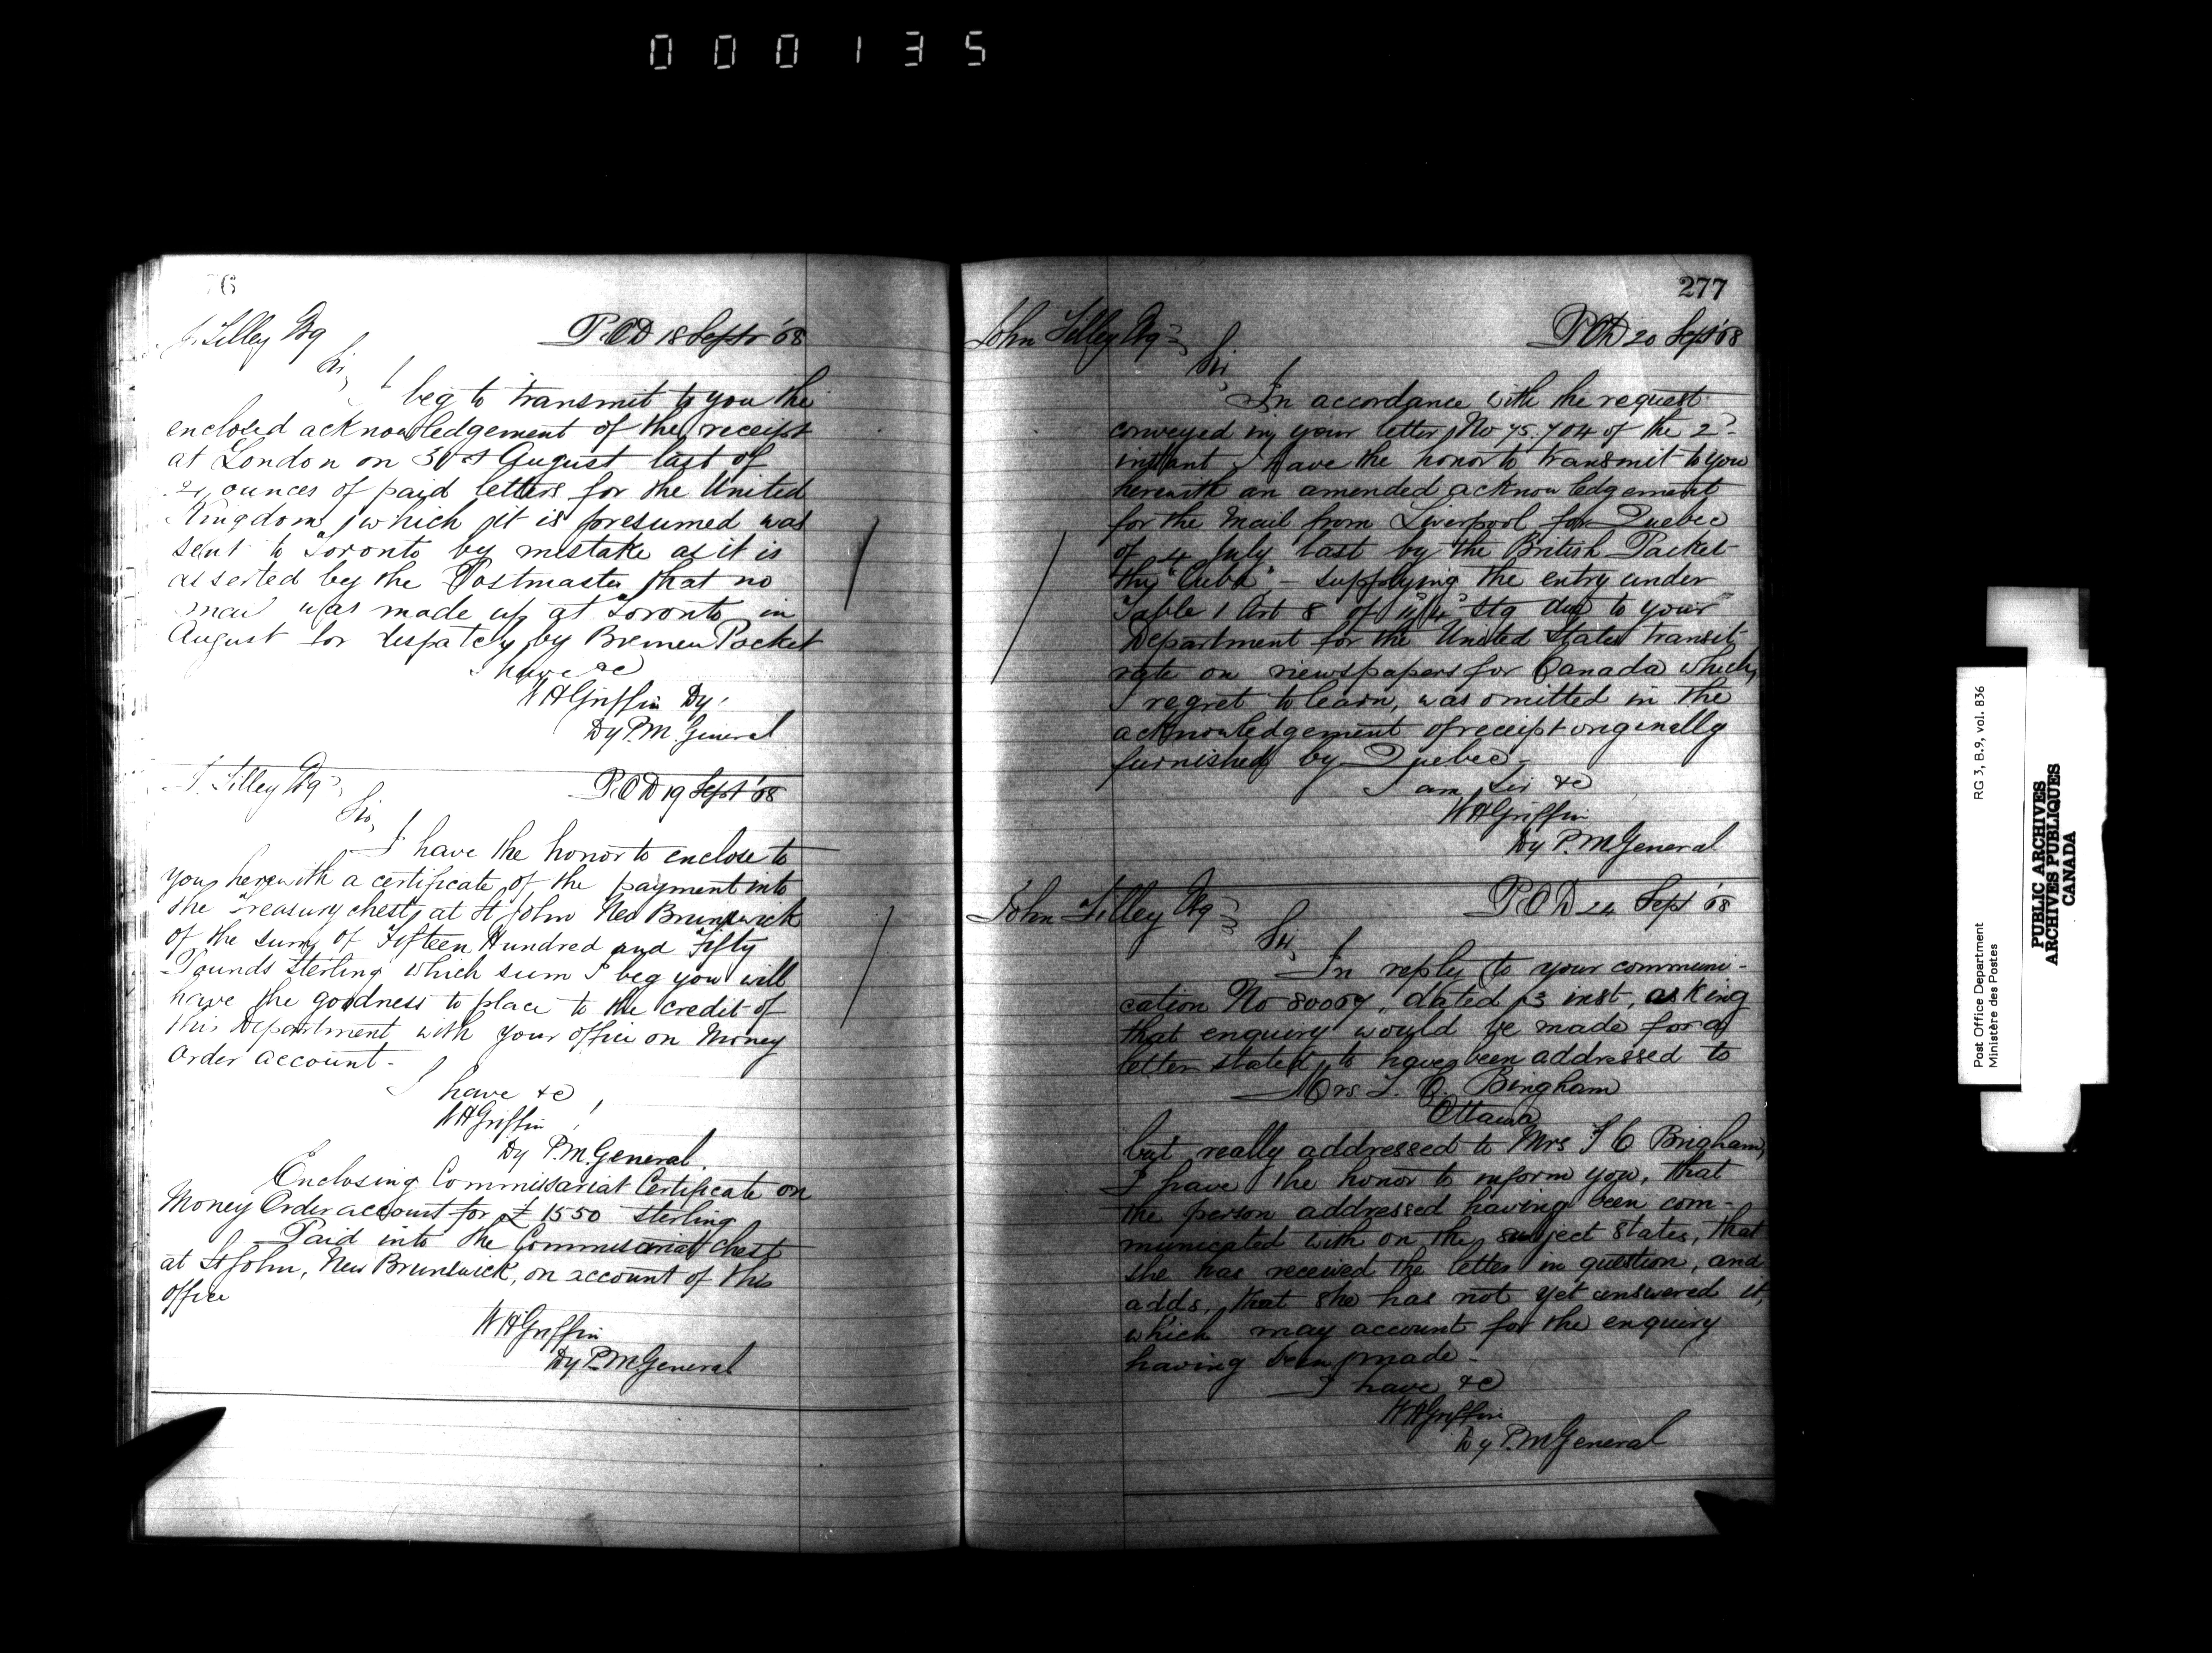 000135
76
J. Tilley Esq
P.O.D 18 Septr '68
Sir,
I beg to transmit to you the
enclosed acknowledgement of the receipt
at London on 31st August last of
ounces of paid letters for the United
Kingdom, which it is presumed was
sent to Toronto by mistake as it is
asserted by the Postmaster that no
mail was made up at Toronto in
August for despatch by Bremen Packet
I have &c
W H Griffin Dy
Dy P.M. General
J. Tilley Esq
P.O.D 19 Sept '68
Sir,
I have the honor to enclose to
you herewith a certificate of the payment into
the Treasury chest, at St John New Brunswick
of the sum of Fifteen Hundred and Fifty
Pounds sterling which sum I beg you will
have the goodness to place to the credit of
this Department with your office on Money
order account -
I have &c
W H Griffin
Dy P.M. General.
Enclosing Commissariat Certificate on
Money Order account for £1550 sterling
Paid into the Commisariat chest
at St John, New Brunswick, on account of this
office
W H Griffin
Dy P.M. General
277
John Tilley Esq
P.O.D 20 Sept '68
Sir
In accordance with the request
conveyed in your letter, No 75.704 of the 2d
instant I have the honor to transmit to you
herewith an amended acknowledgement
for the Mail from Liverpool for Quebec
of 4 July last by the British Packet
the "Cuba" - supplying the entry under
Table 1 Art 8 of Stg due to your
Department for the United States transit
rate on newspapers for Canada which,
I regret to learn, was omitted in the
acknowledgement of receipt originally
furnished by Quebec -
I am, Sir &c
W H Griffin
Dy P.M. General
John Tilley Esq
P.O.D 24 Sept '68
Sir,
In reply to your communi-
cation No 80067, dated 3 inst, asking
that enquiry would be made for a
letter stated to have been addressed to
Mrs. T. C. Bingham
Ottawa
but really addressed to Mrs T C Brigham,
I have the honor to inform you, that
the person addressed having been com-
municated with on the subject states, that
she has received the letter in question, and
adds, that she has not yet answered it,
which may account for the enquiry
having been made -
I have &c
W H Griffin
Dy P.M General
Post Office Department
Ministère des Postes
RG 3, B.9, vol. 836
PUBLIC ARCHIVES
ARCHIVES PUBLIQUES
CANADA